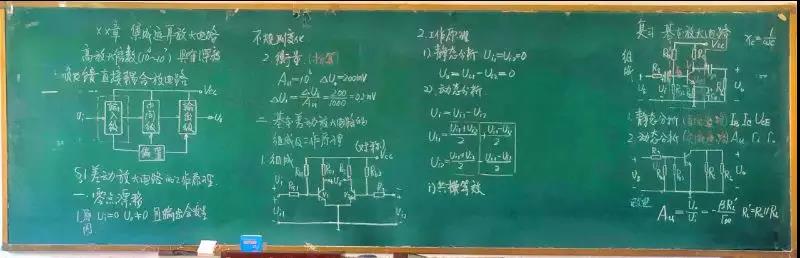 ××章 集成运算放大电路
高放大倍数(10⁴-10⁷) 具有深
直接耦合放大电路
输入级
中间级
输出级
偏置
Vcc
Ui
Uo
§1 差动放大电路的工作原理
一、零点漂移
1. 原因 Ui=0 Uo≠0 且输出会发生
不规则变化
2. 衡量
Au=10³ ΔUo=200mV
ΔUi=ΔUo/Au=200/1000=0.2mV
二、基本差动放大电路的
组成及工作原理
1. 组成 (对称)
Vcc
Ui
Ui1
Ui2
2. 工作原理
1). 静态分析 Ui1=Ui2=0
Uo=Uo1-Uo2=0
2). 动态分析
Ui=Ui1-Ui2
Ui1=(Ui1+Ui2)/2+(Ui1-Ui2)/2
Ui2=(Ui1+Ui2)/2-(Ui1-Ui2)/2
i) 共模等效
复习 基本放大电路
Xc=1/ωC
组成
Vcc
1. 静态分析(直流通路) IB IC UCE
2. 动态分析(交流通路) Au ri ro
Au=Uo/Ui=-βRL'/rbe RL'=Rc//RL